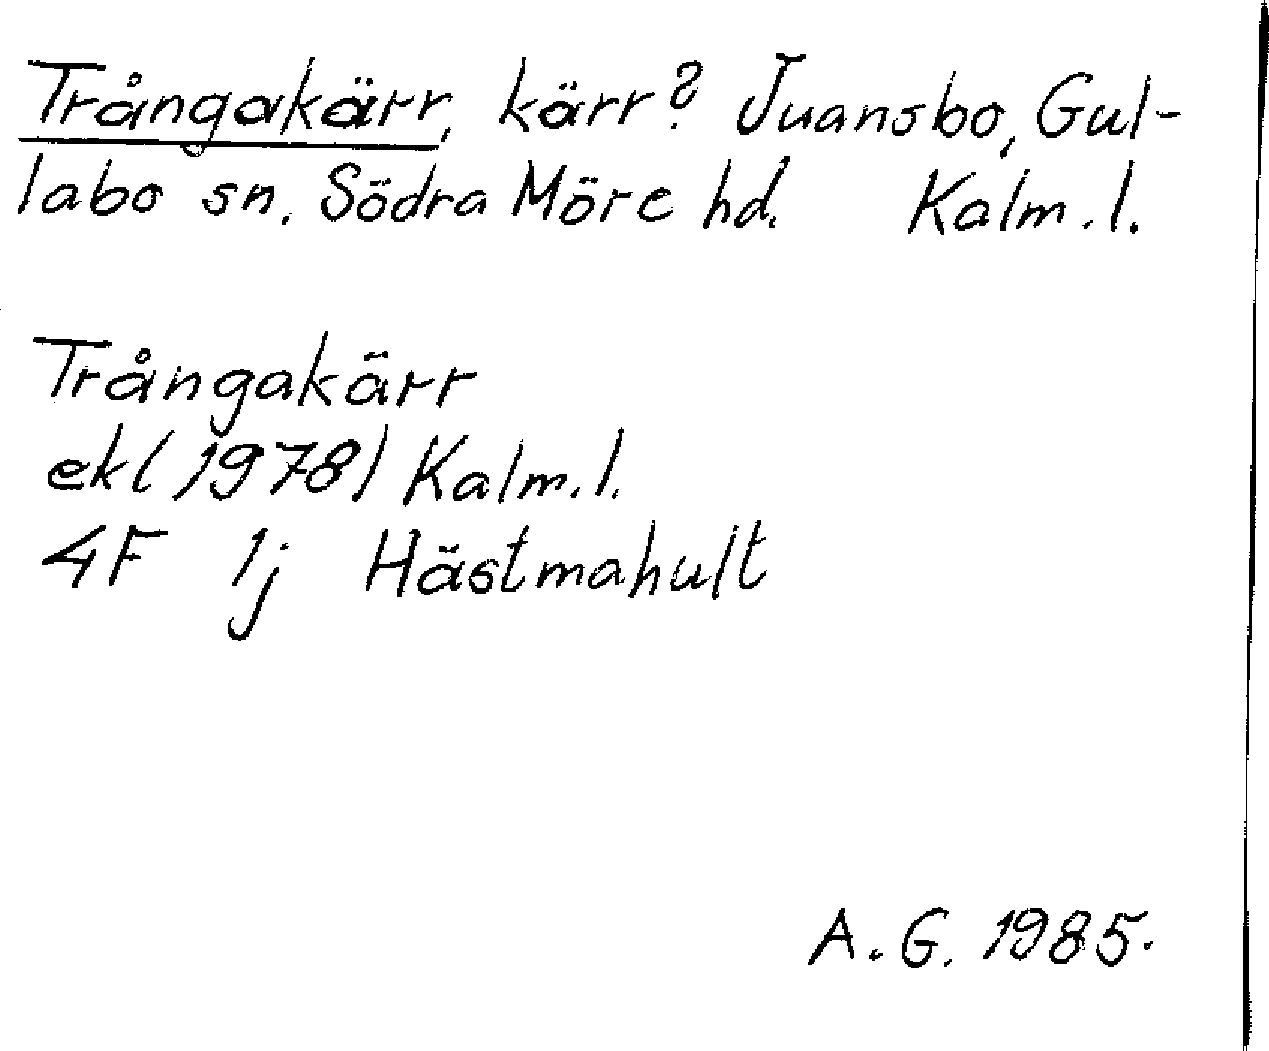 Trångakärr, kärr? Juansbo, Gul-
labo sn. Södra Möre hd. Kalm. l.
Trångakärr
ek (1978) Kalm. l.
4F 1j Hästmahult
A. G. 1985.